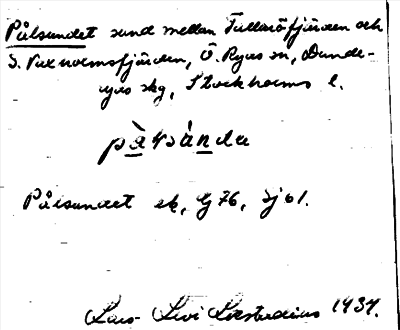 Pålsundet sund mellan Tallaröfjärden och
S. Vaxholmsfjärden, Ö. Ryds sn, Dande-
ryds skg, Stockholms l.
pàlsùnda
Pålsundet ek, G 76, sj 61.
Lars-Levi Læstadius 1937.